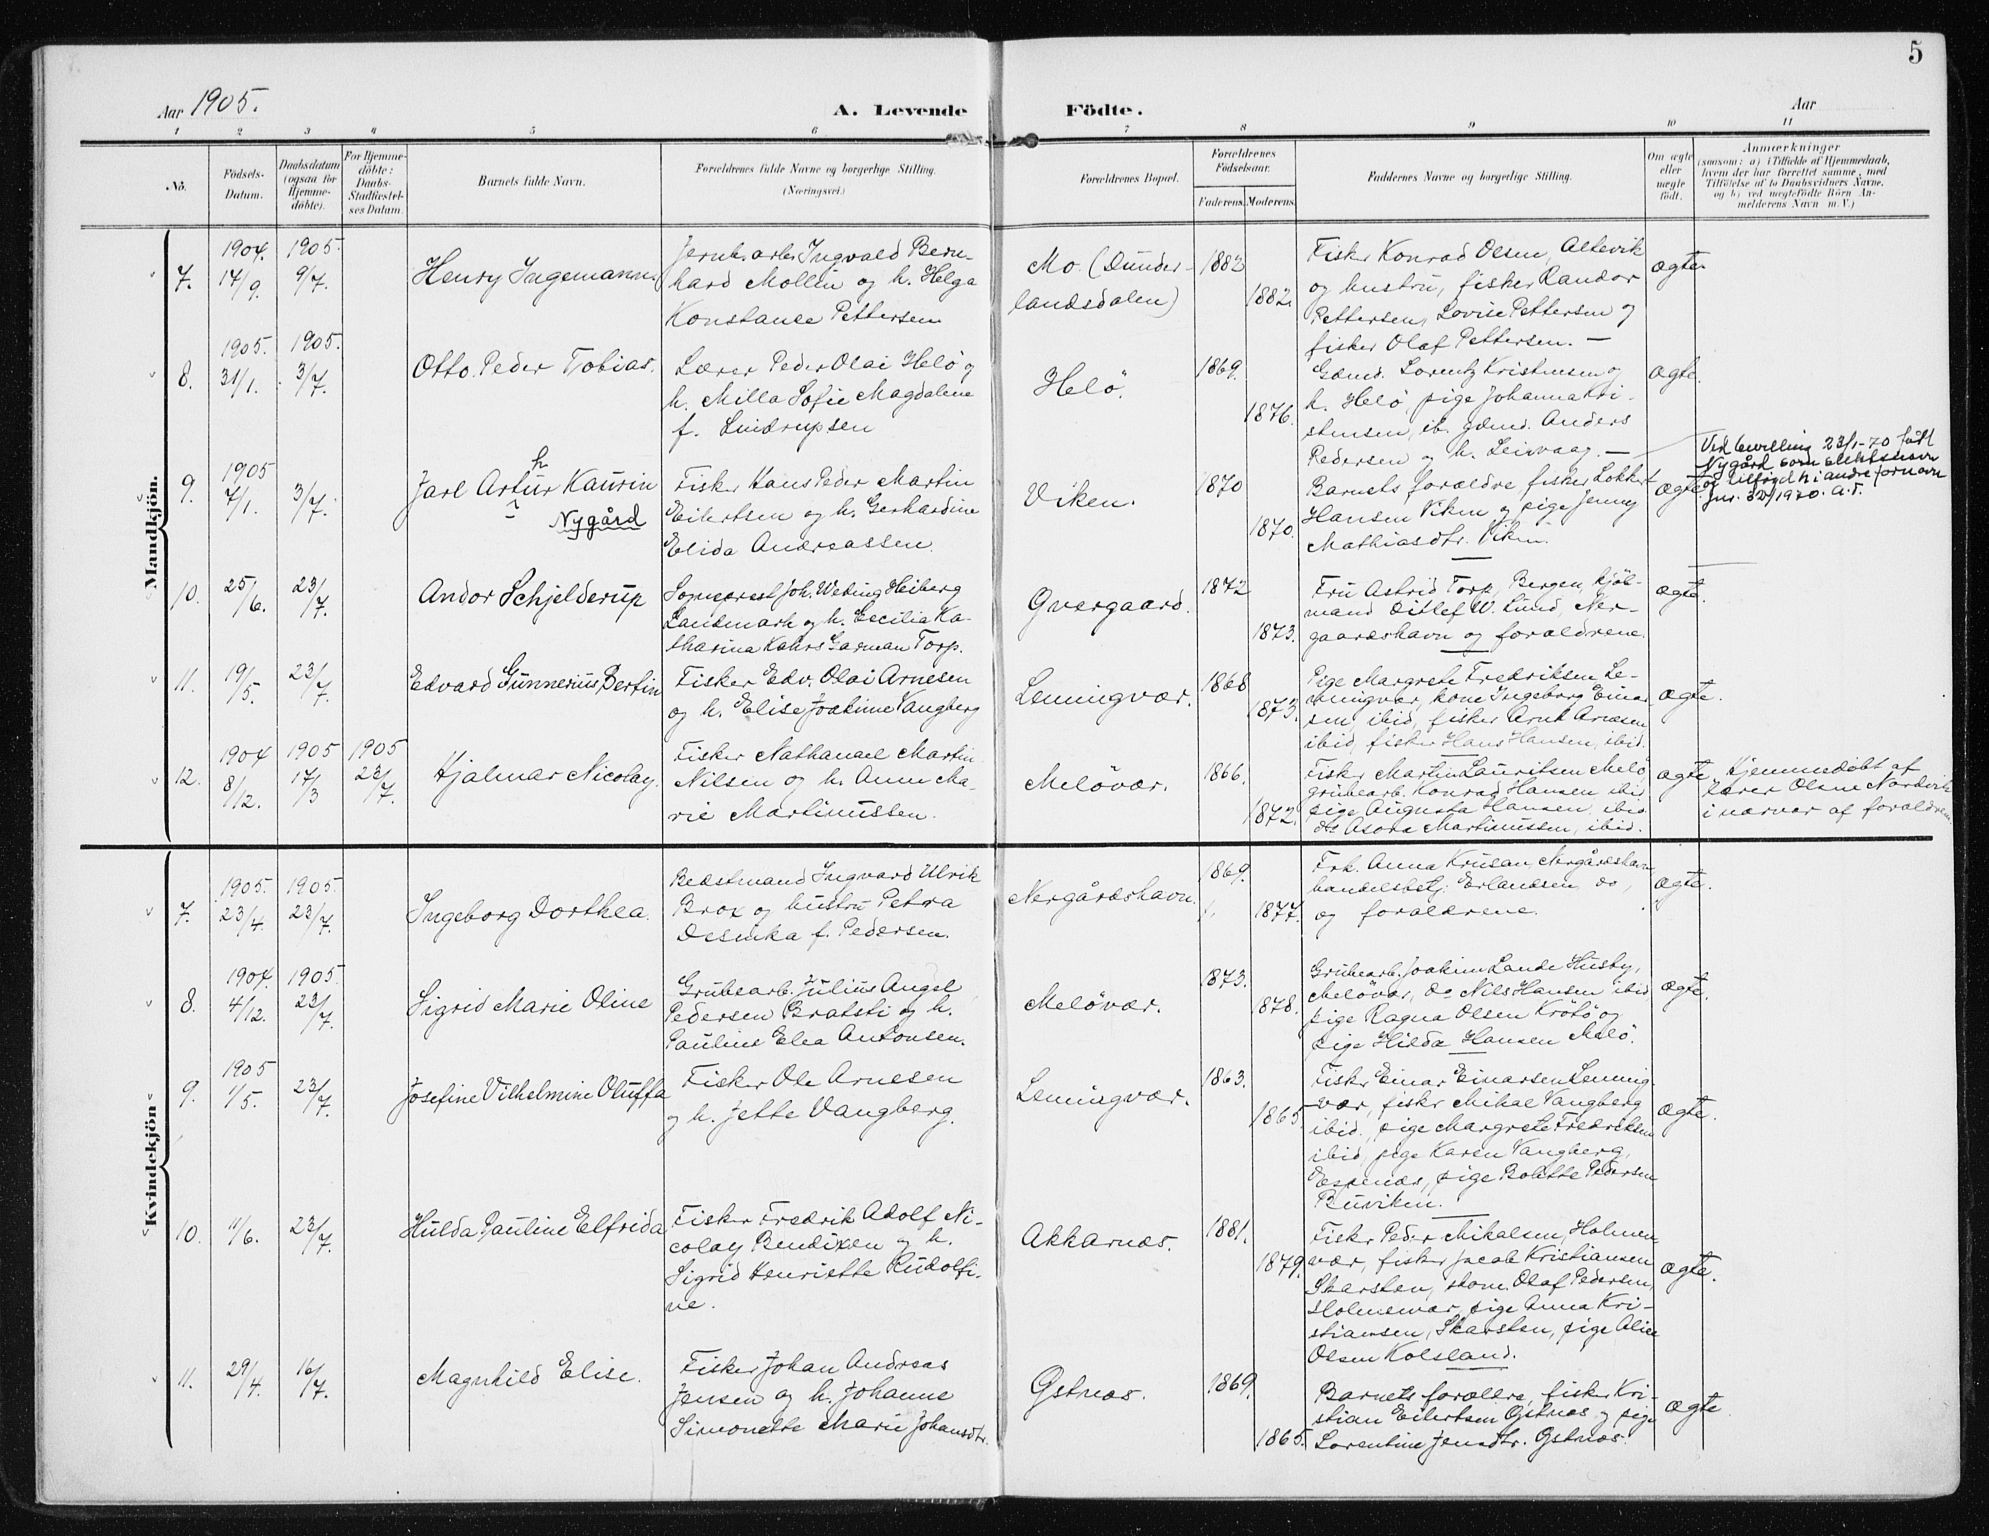 5
Aar 1905.
A. Levende Födte.
Aar
1 2 3 4 5 6 7 8 9 10 11
No.
Födsels-
Datum.
Daabsdatum
(ogsaa for
Hjemme-
döbte).
For Hjemme-
döbte:
Daabs-
Stadfæstel-
ses Datum.
Barnets fulde Navn.
Forældrenes fulde Navne og borgerlige Stilling.
(Næringsvei.)
Forældrenes Bopæl.
Forældrenes
Födselsaar.
Faderens. Moderens.
Faddernes Navne og borgerlige Stilling.
Om ægte
eller
uægte
födt.
Anmærkninger
(saasom: a) i Tilfælde af Hjemmedaab,
hvem der har forrettet samme, med
Tilföielse af to Daabsvidners Navne,
og b) ved uægtefödte Börn An-
melderens Navn m. V.)
Mandkjön.
7.
1904.
17/9.
1905.
9/7.
Henry Ingemann
Jernb.arb. Ingvald Bern-
hard Mollin og h. Helga
Konstance Pettersen
Mo. (Dunder-
landsdalen)
1882
1882.
Fisker Konrad Olsen, Altevik
og hustru, fisker Randor
Pettersen, Lovise Pettersen og
fisker Olaf Pettersen. —
ægte
8.
1905.
31/1.
1905.
3/7.
Otto Peder Tobias.
Lærer Peder Olai Helö og
h. Milla Sofie Magdalene
f. Lindrupsen
Helö.
1869.
1876.
Gamd. Lorentz Kristensen og
h. Helö, pige Johanna Kri-
stensen, ib. gamd. Anders
Pedersen og h. Leirvaag. —
ægte.
9.
1905
7/1.
3/7.
h
Jarl Artur Kaurin
Nygård
Fisker Hans Peder Martin
Eilertsen og h. Gerhardine
Elida Andreassen.
Viken.
1870
1870.
Barnets forældre fisker Lokkert
Hansen Viken og pige Jenny
Mathiasdtr. Viken.
ægte.
Ved bevilling 23/1-70 fått
Nygård som slektsnavn
og tilføyd h i andre fornavn
Jnr. 32/1970. A.T.
10.
25/6.
23/7.
Andor Schjelderup
Sogneprest Joh. Weding Heiberg
Landmark og h. Cecilia Ka-
tharina Kahrs Garman Torp.
Gvergaard.
1872
1873.
Fru Astrid Torp, Bergen, kjöb-
mand Ditlef W. Lund, Ner-
gaardshavn og forældrene.
ægte.
11.
19/5.
23/7.
Edvard Gunnerius Bertin
Fisker Edv. Olai Arnesen
og h. Elise Joakime Vangberg
Lemingvær.
1868
1873.
Pige Margrete Fredriksen Le-
mingvær, kone Ingeborg Einar
sen ibid, fisker Arnt Arnesen
ibid, fisker Hans Hansen, ibid.
ægte.
12.
1904
8/12.
1905
17/3
1905
23/7.
Hjalmar Nicolay
Fisker Nathanael Martin
Nilsen og h. Anne Ma-
rie Martinussen.
Melövær.
1866.
1872.
Fisker Martin Lauritsen Melö,
grubearb. Konrad Hansen ibid
pige Augusta Hansen ibid
do Asora Martinussen, ibid.
ægte
Hjemmedöbt af
lærer Olsne Nordvik
i nærvær af forældrene.
Kvindekjön
7.
1905.
23/4.
1905.
23/7.
Ingeborg Dorthea.
Bedstmand Ingvard Ulrik
Brox og hustru Petra
Desideria f. Pedersen.
Nergårdshavn.
1869.
1877.
Frk. Anna Krusan, Nergårdshavn
handelsbetj. Erlandsen, do,
og forældrene.
ægte.
8.
1904.
4/12.
1905.
23/7.
Sigrid Marie Oline
Grubearb. Julius Angel
Pedersen Bratsti og h.
Pauline Elea Antonsen.
Melövær.
1873.
1878.
Grubearb. Joakim Lande Husby,
Melövær, do Nils Hansen ibid
pige Ragna Olsen Krötö og
pige Hilda Hansen Melö.
ægte.
9.
1905
1/5.
23/7.
Josefine Vilhelmine Oluffa
Fisker Ole Arnesen
og h. Jette Vangberg.
Lemingvær.
1863.
1865
Fisker Einar Einarsen Leming-
vær, fisker Mikal Vangberg
ibid., pige Margrete Fredriksen
ibid, pige Karen Vangberg,
Espenæs, pige Bolette Pedersen
Buviken.
ægte.
10.
11/6.
23/7.
Hulda Pauline Elfrida
Fisker Fredrik Adolf Ni-
colay Bendixen og h.
Sigrid Henriette Rudolfi-
ne.
Akkarnæs.
1881.
1879.
Fisker Peder Mikalsen, Holmen
vær, fisker Jacob Kristiansen
Skarsten, skom. Olaf Pedersen,
Holmenvær, pige Anna Kri-
stiansen, Skarsten, pige Alise
Olsen Kolsland.
ægte.
11.
29/4.
16/7.
Magnhild Elise.
Fisker Johan Andreas
Jensen og h. Johanne
Simonette Marie Johansdtr.
Gstnæs.
1869.
1865.
Barnets forældre, fisker Kri-
stian Eilertsen Gstnæs og pige
Lorentine Jensdtr. Gstnæs.
ægte